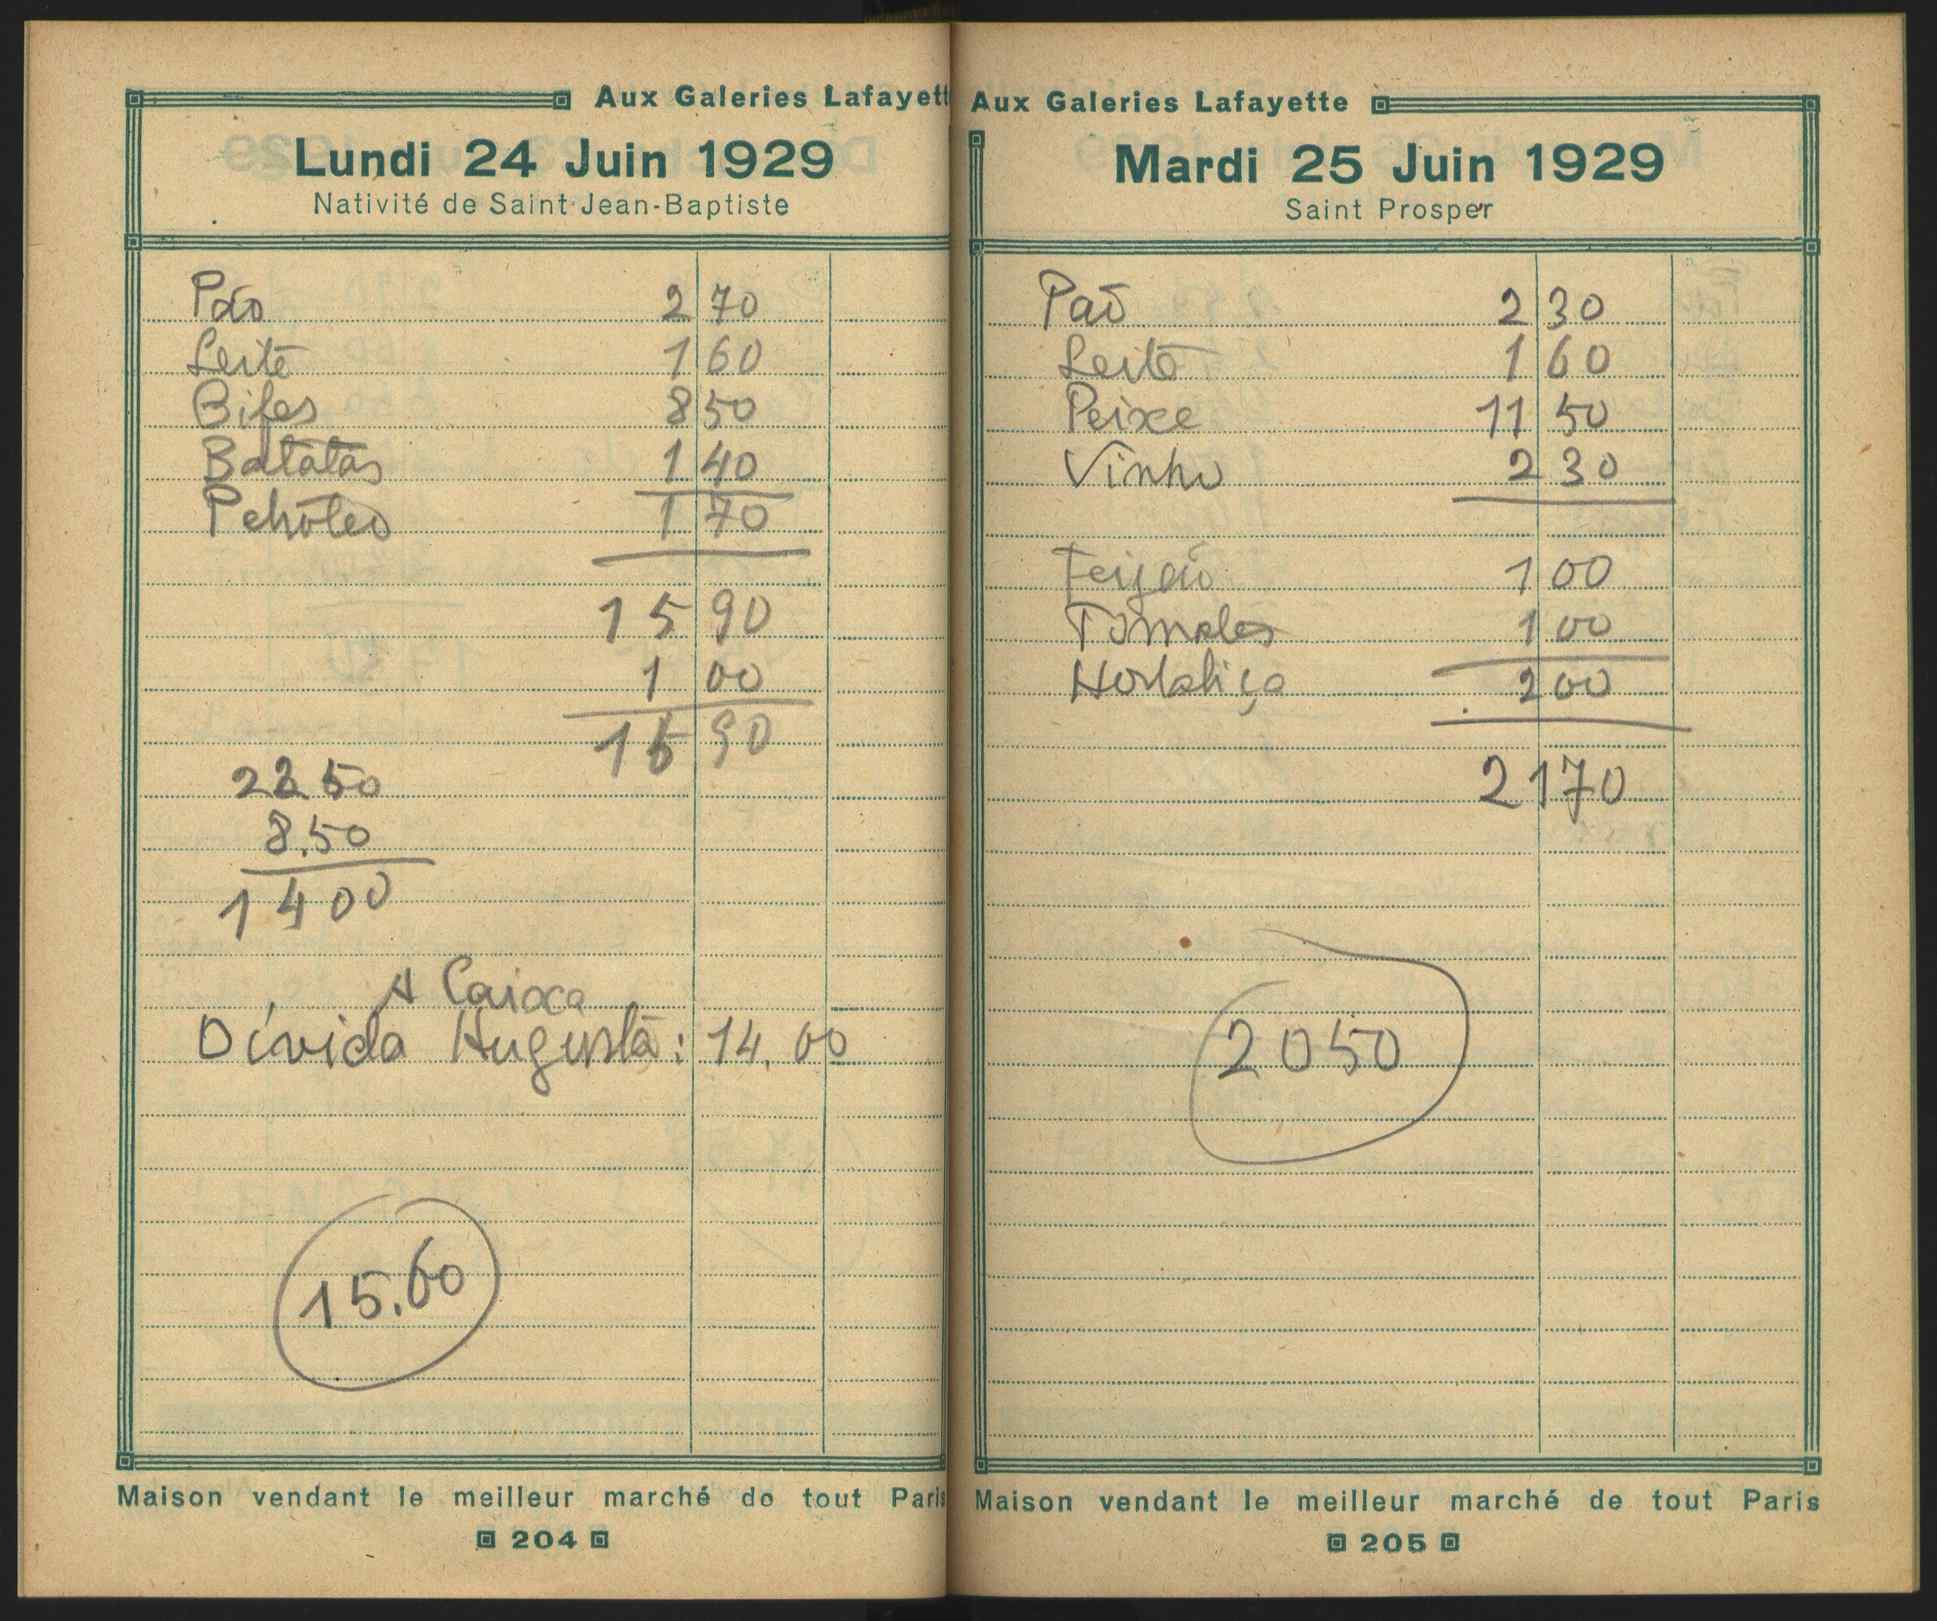 Aux Galeries Lafayett
Lundi 24 Juin 1929
Nativité de Saint-Jean-Baptiste
Pão 2 70
Leite 1 60
Bifes 8 50
Batatas 1 40
Petróleo 1 70
15 90
1 00
90
50
8.50
14 00
A Caixa
Dívida Augusta: 14.00
15.60
Maison vendant le meilleur marché de tout Paris
204
Aux Galeries Lafayette
Mardi 25 Juin 1929
Saint Prosper
Paõ 2 30
Leite 1 60
Peixe 11 50
Vinho 2 30
Feijão 1 00
Tomates 1 00
Hortaliça 2 00
21 70
2050
Maison vendant le meilleur marché de tout Paris
205